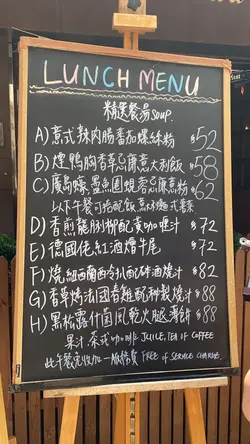 LUNCH MENU
精選餐湯 SOUP.
A) 意式辣肉腸番茄螺絲粉 $52
B) 煙鴨胸香草忌廉意大利飯 $58
C) 廣島蠔、墨魚圓燒壹忌廉意粉 $62
以下午餐可搭配飯、意粉、薯菜
D) 香煎龍脷柳配黃咖喱汁 $72
E) 德國佬紅酒燴牛尾 $72
F) 燒紐西蘭西冷扒配砵酒燒汁 $82
G) 香草烤法國春雞配秘製燒汁 $88
H) 黑松露什菌風乾火腿薄餅 $88
果汁、茶或咖啡 JUICE, TEA OR COFFEE
此午餐免收加一服務費 FREE OF SERVICE CHARGE.